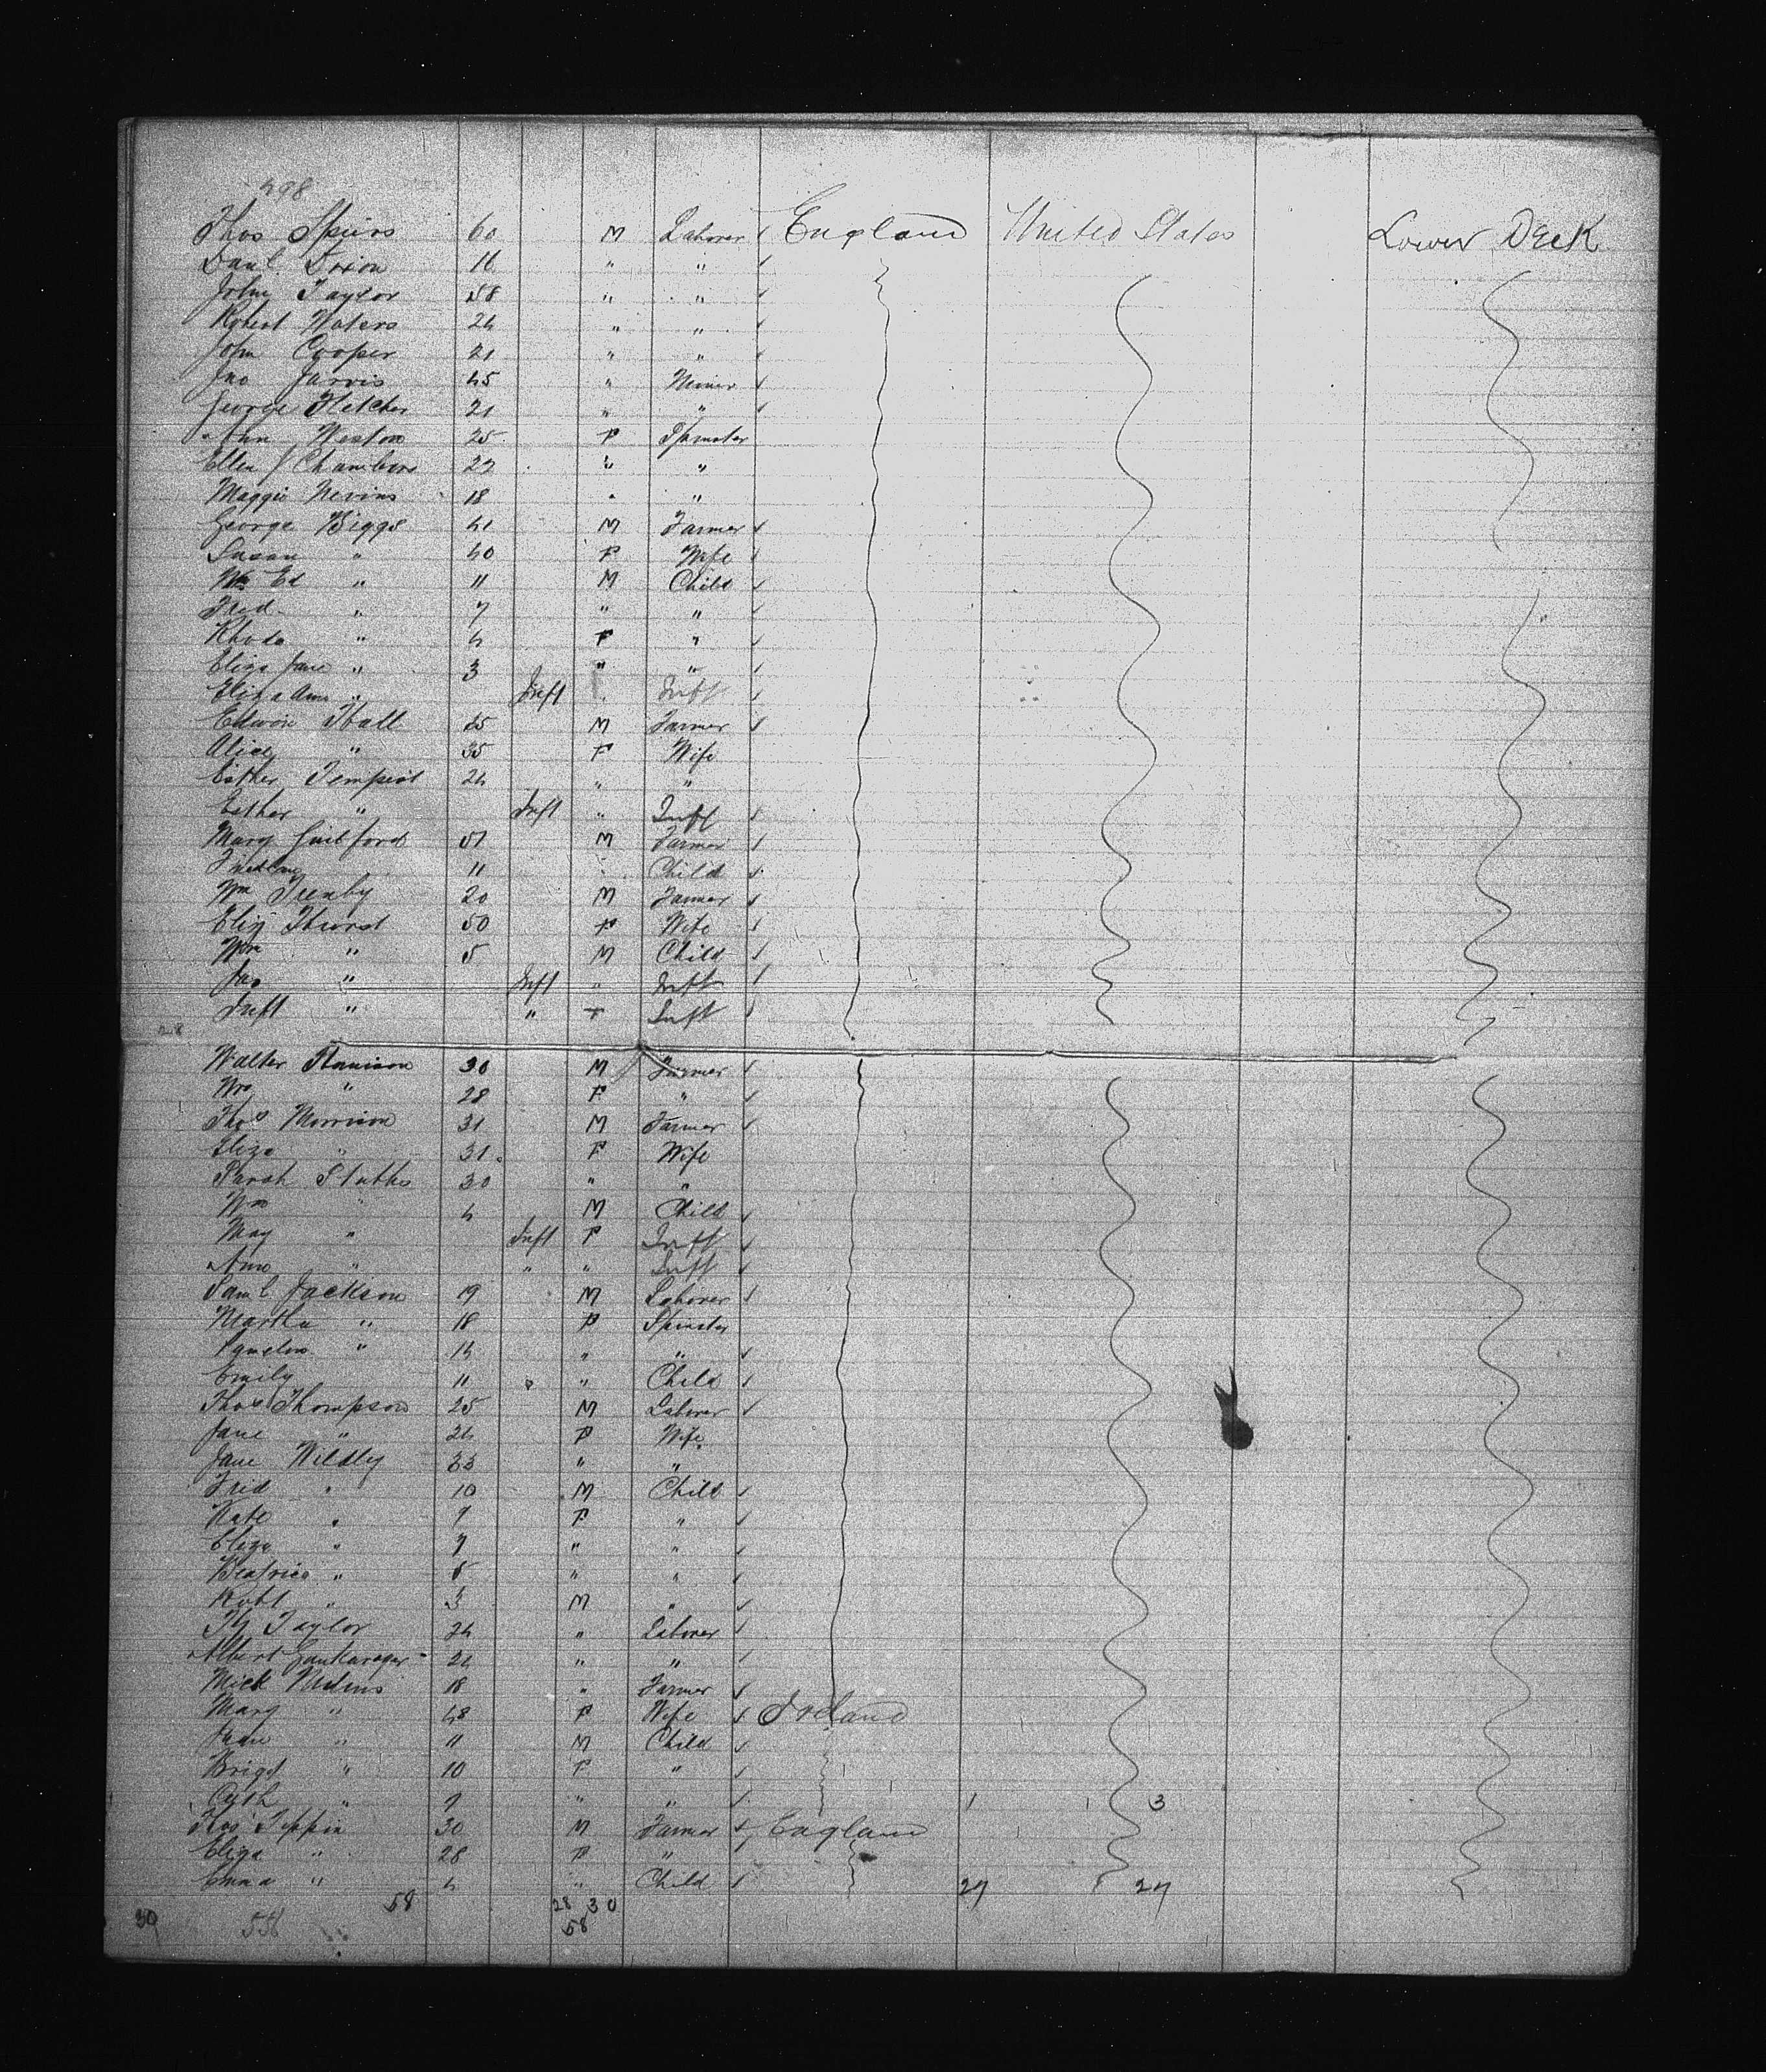 498
Thos Spiers 60 M Laborer England United States Lower Deck
Danl Dixon 16 " "
John Taylor 58 " "
Robert Waters 24 " "
John Cooper 21 " "
Jno Jarvis 45 " Miner
George Fletcher 21 " "
Ann Weston 25 F Spinster
Ellen J Chambers 22 " "
Maggie Nevins 18 " "
George Biggs 41 M Farmer
Susan " 40 F Wife
Wm Ed " 11 M Child
Fred " 7 " "
Rhoda " 4 F "
Eliza Jane " 3 " "
Eliza Ann " Inft Inft
Edwin Hall 35 M Farmer
Alice " 35 F Wife
Esther Tempest 24 " "
Esther " Inft " Inft
Mary Guilford 51 M Farmer
11 Child
Wm 20 M Farmer
Eliz Hurst 50 F Wife
Wm " 5 M Child
Jno " Inft " Inft
Inft " " F Inft
28
Walter 30 M Farmer
" 28 F "
Thos Morrison 31 M Farmer
Eliza " 31 F Wife
Sarah 30 " "
Wm " 4 M Child
May " Inft F Inft
Ann " " " Inft
Saml Jackson 19 M Laborer
Martha " 18 F Spinster
" 14 " "
Emily 11 " Child
Thos Thompson 25 M Laborer
Jane " 24 F Wife
Jane Wildley 33 " "
Fred " 10 M Child
Kate " 9 F "
Eliza " 7 " "
Beatrice " 5 " "
Robt " 3 M "
Taylor 24 " Laborer
Albert 24 " "
Mick 18 " Farmer
Mary " 48 F Wife Ireland
" 11 M Child
Bridgt " 10 F "
Cath " 9 " " 1 1 3
Thos Teppin 30 M Farmer England
Eliza " 28 F "
Emma " 4 " Child 27 27
58 28 30
30 558 58